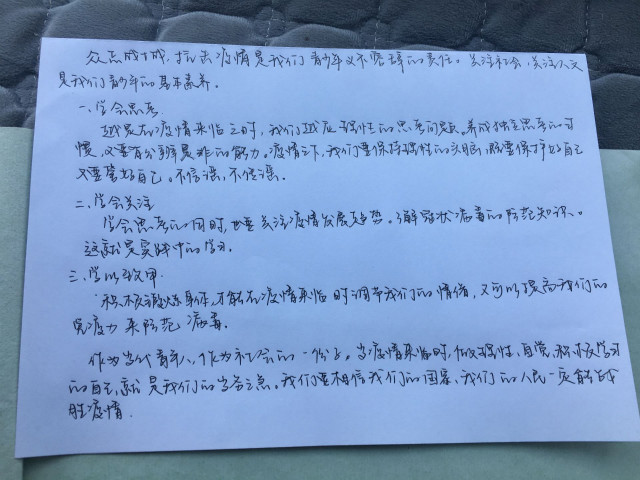 众志成城,抗击疫情是我们青少年义不容辞的责任。关注社会,关注人文
是我们青少年的基本素养。
一、学会思考
越是在疫情来临之时,我们越应理性的思考问题。养成独立思考的习
惯,又要有分辨是非的能力。疫情之下,我们要保持理性的头脑,既要保护好自己
又要管好自己。不信谣,不传谣。
二、学会关注
学会思考的同时,也要关注疫情发展趋势。了解冠状病毒的防范知识。
这就是实践中的学习.
三、学以致用.
积极锻炼身体,才能在疫情来临时调节我们的情绪,又可以提高我们的
免疫力来防范病毒.
作为当代青年人,作为社会的一份子。当疫情来临时,做理性、自觉、积极学习
的自己,就是我们的当务之急。我们要相信我们的国家、我们的人民一定能战
胜疫情.